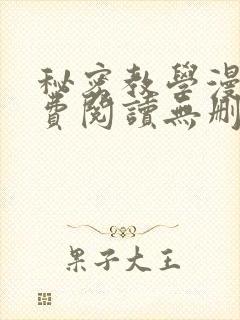 秘密教學漫
費閱讀無刪
果子大王